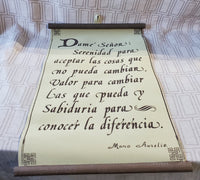 Dame Señor:
Serenidad para
aceptar las cosas que
no pueda cambiar
Valor para cambiar
Las que pueda y
Sabiduria para
conocer la diferencia.
Marco Aurelio